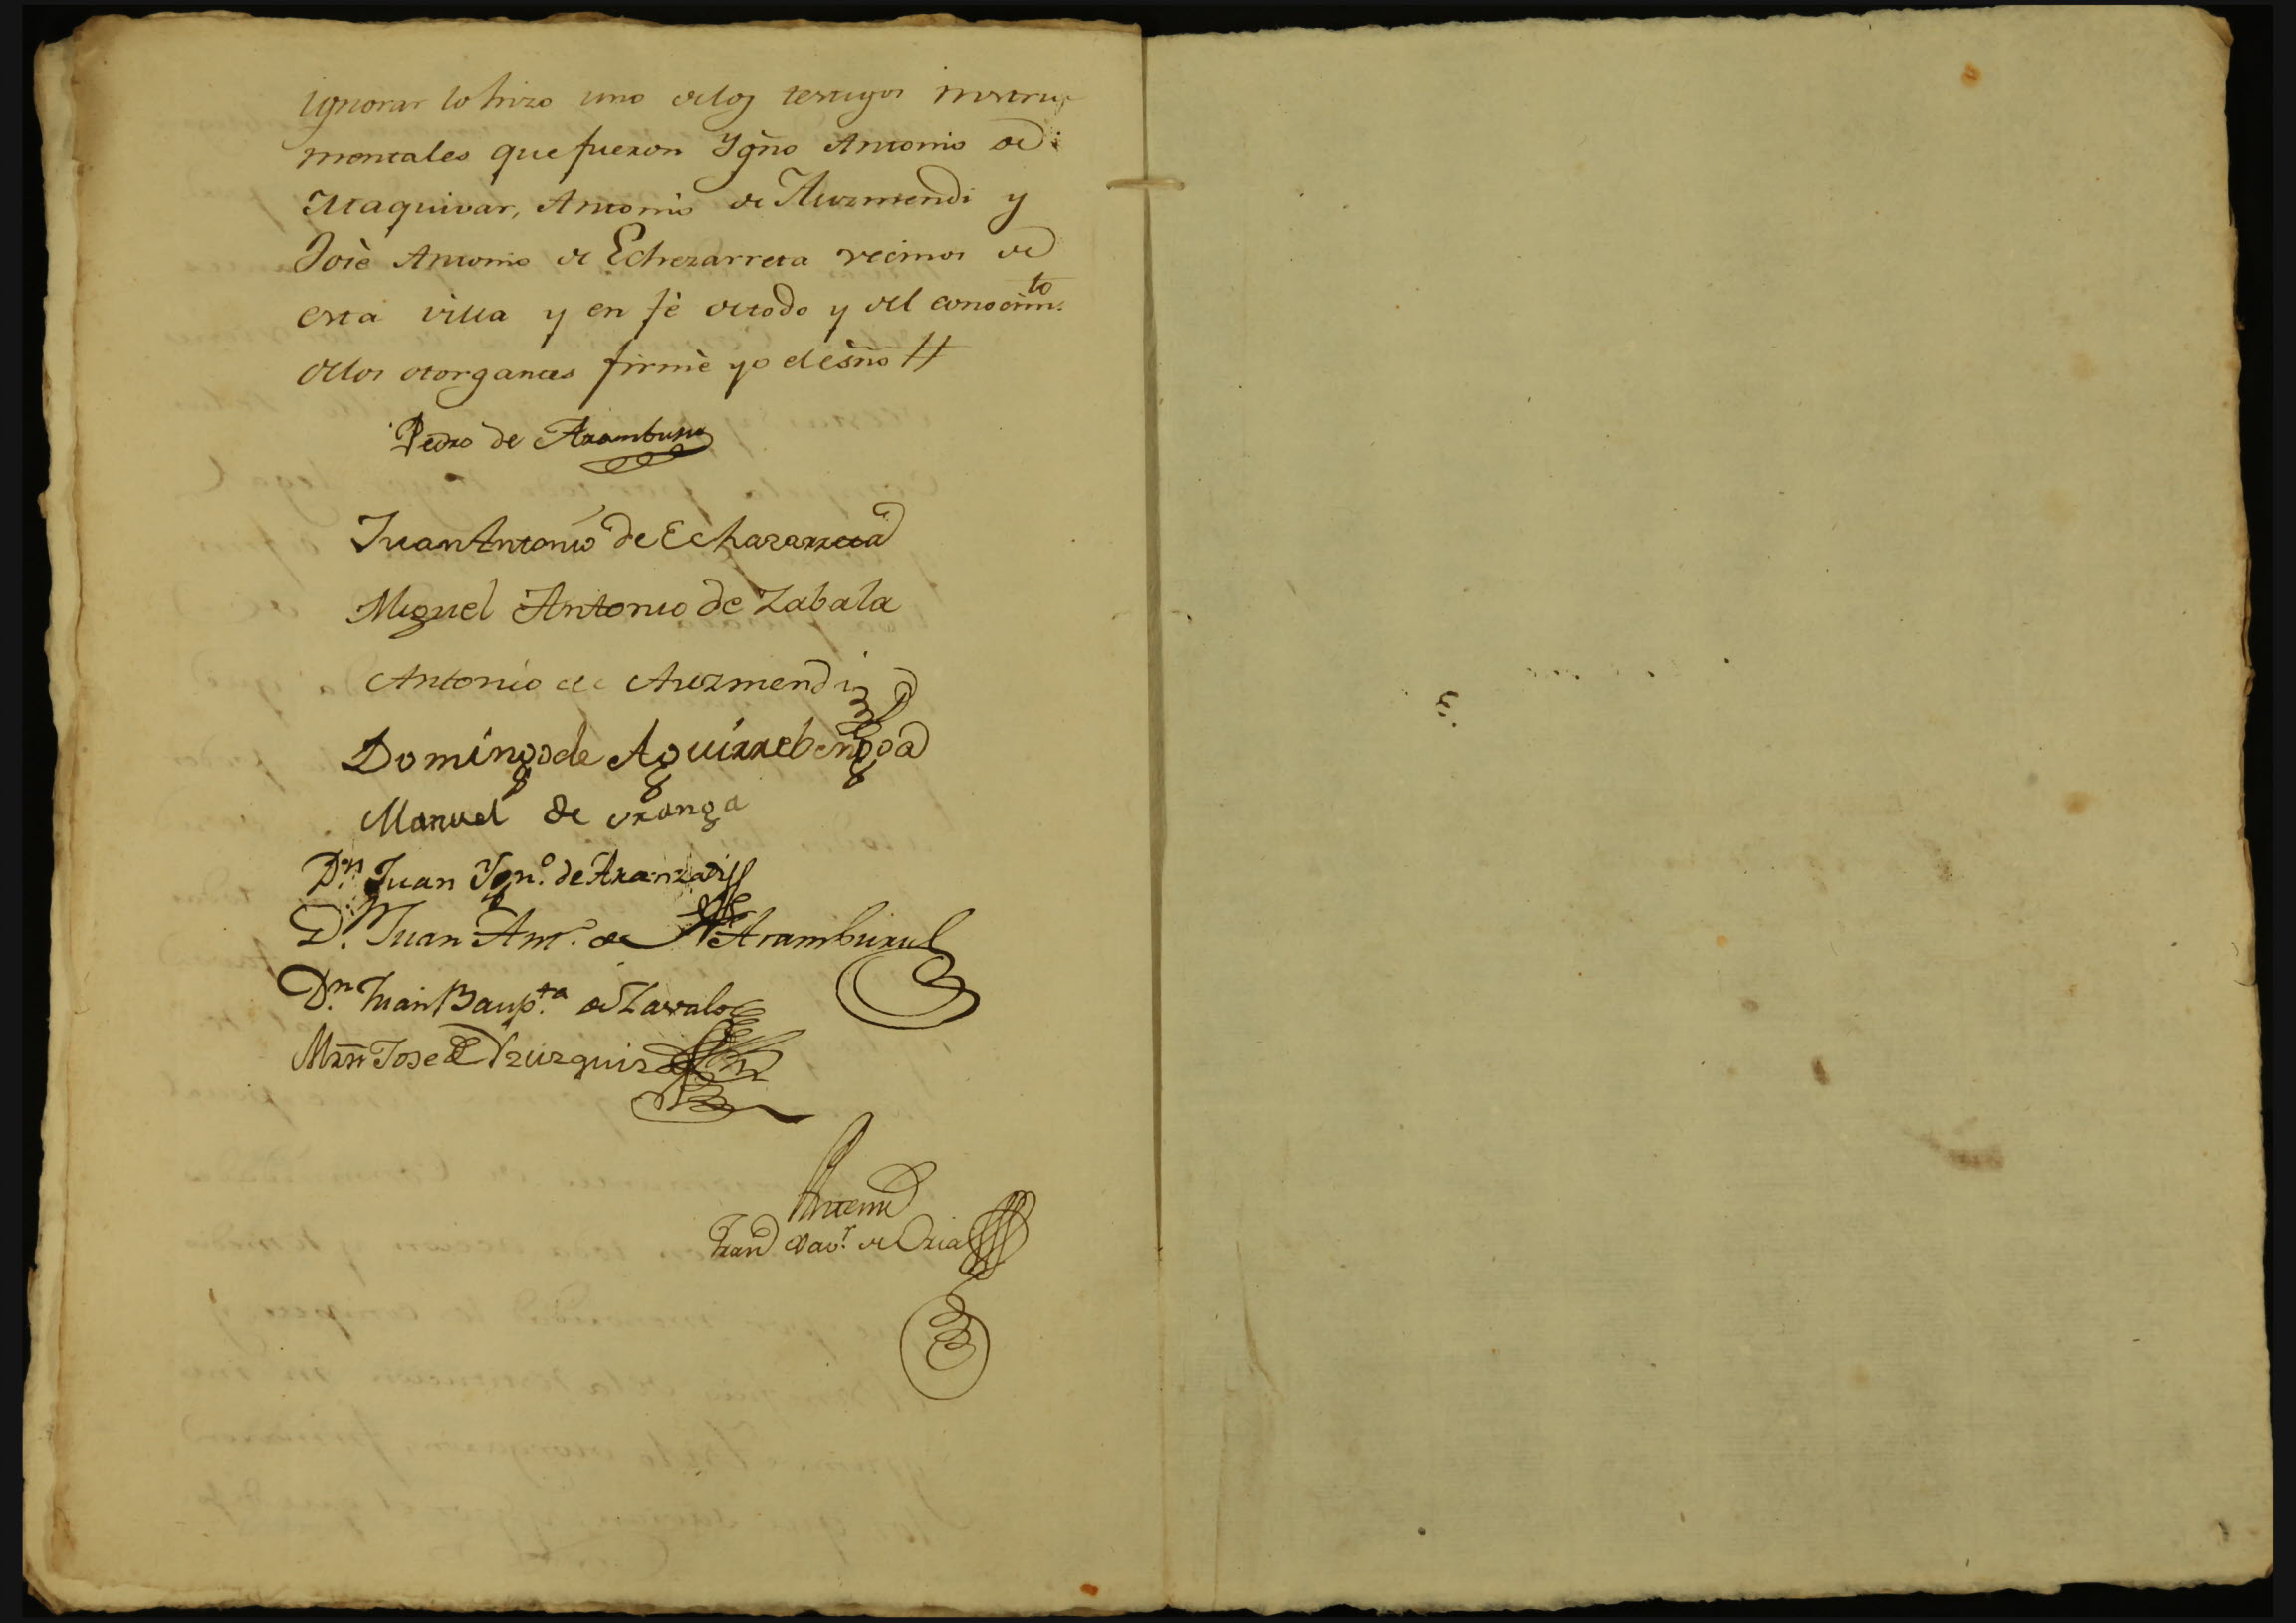 ignorar lo hizo uno de los testigos instru-
mentales que fueron Ygño Antonio de
Ytaquivar, Antonio de Auzmendi y
Josè Antonio de Echezarreta vecinos de
esta villa y en fè de todo y del conocim.to
de los otorgantes firmè yo el esño //
Pedro de Aramburu
Juan Antonio de Echazarreta
Miguel Antonio de Zabala
Antonio de Auzmendi
Domingo de Aguirrebengoa
Manuel de uranga
Dn. Juan Ygn.o de Aranzadi
Dn. Juan Ant.o de Aramburu
Dn. Juan Baup.ta de Zavala
Mrñ Jose de Yzuzquiza
Antemi
Fran Xav.r de Oria